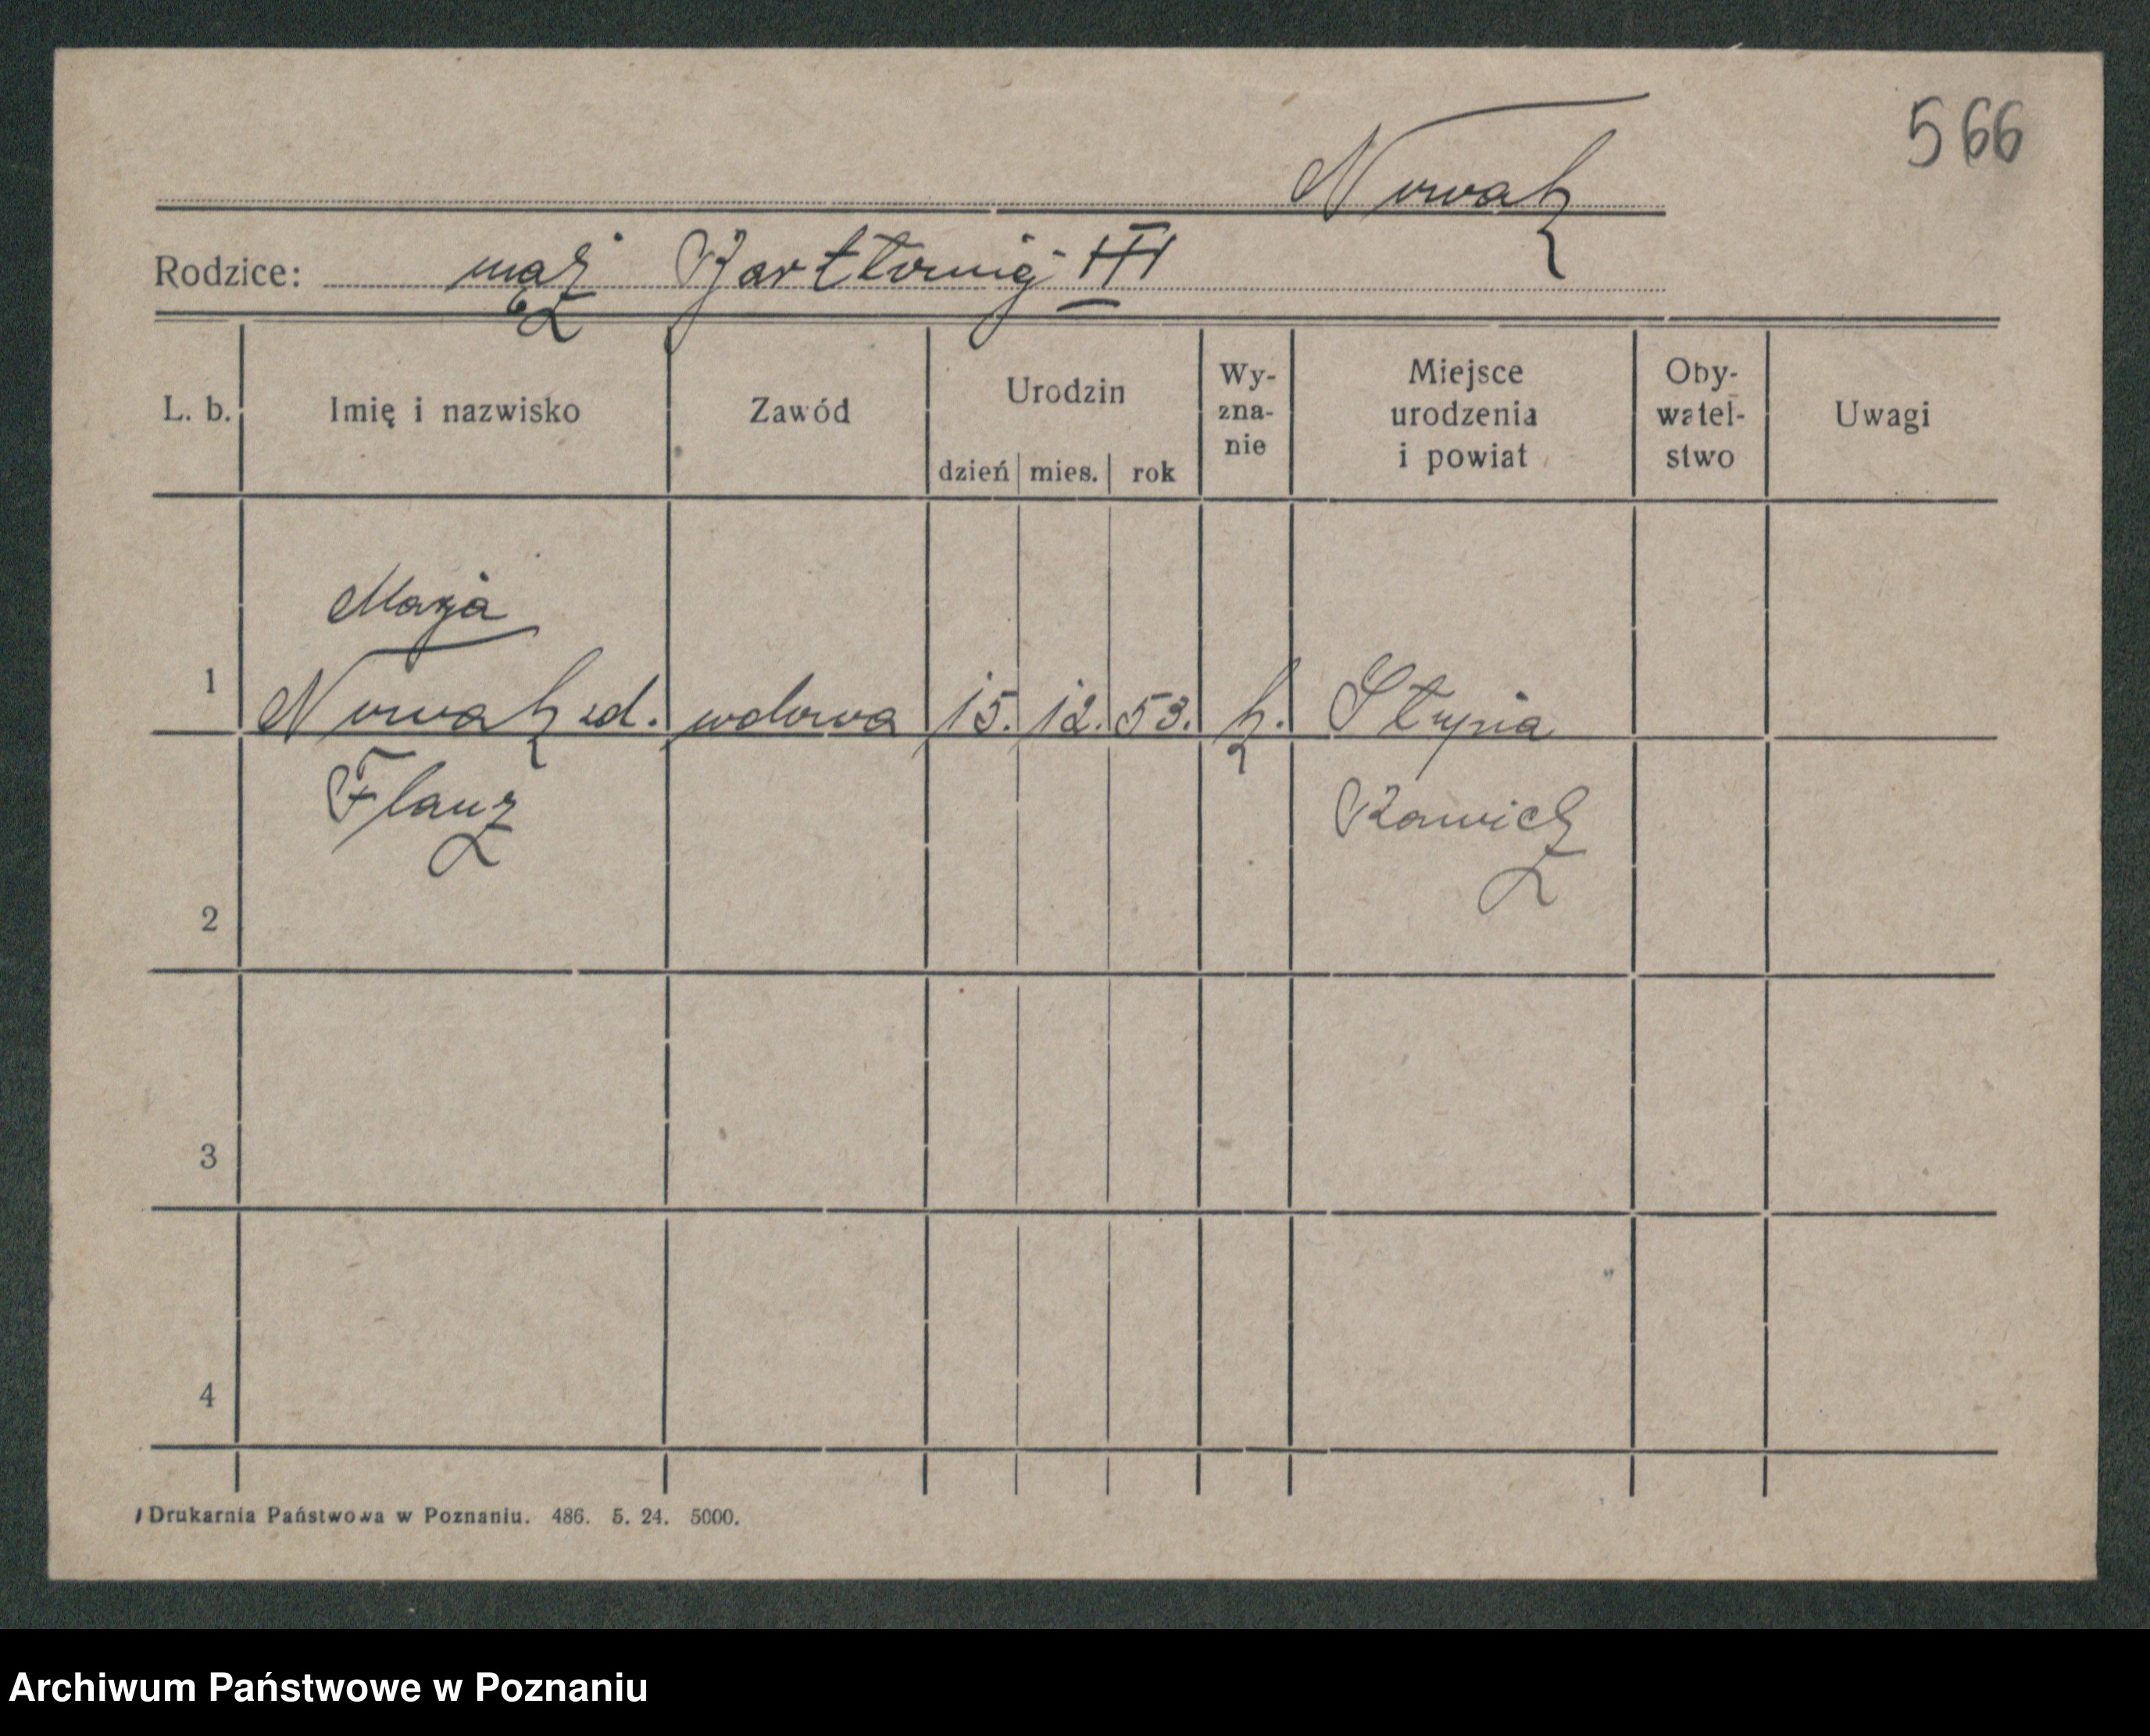 566
Nowak
Rodzice: mąż Bartłomiej III
L. b. Imię i nazwisko Zawód Urodzin dzień mies. rok Wy-zna-nie Miejsce urodzenia i powiat Oby-watel-stwo Uwagi
Marja
1 Nowak zd. wdowa 15. 12. 53. k. Stupia
Flanz Rawicz
2
3
4
Drukarnia Państwowa w Poznaniu. 486. 5. 24. 5000.
Archiwum Państwowe w Poznaniu